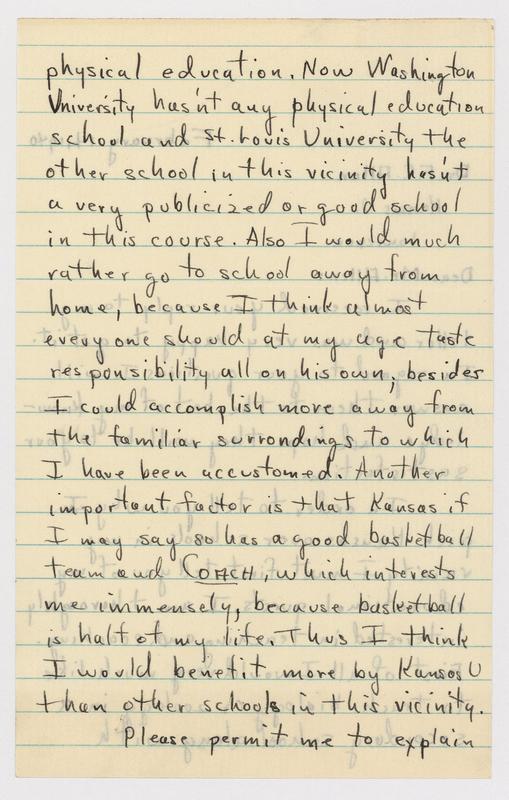 physical education. Now Washington
University has'nt any physical education
school and St. Louis University the
other school in this vicinity has'nt
a very publicized or good school
in this course. Also I would much
rather go to school away from
home, because I think almost
everyone should at my age taste
responsibility all on his own, besides
I could accomplish more away from
the familiar surrondings to which
I have been accustomed. Another
important factor is that Kansas if
I may say so has a good basketball
team and COACH, which interests
me immensely, because basketball
is half of my life. Thus I think
I would benefit more by Kansas U
than other schools in this vicinity.
Please permit me to explain